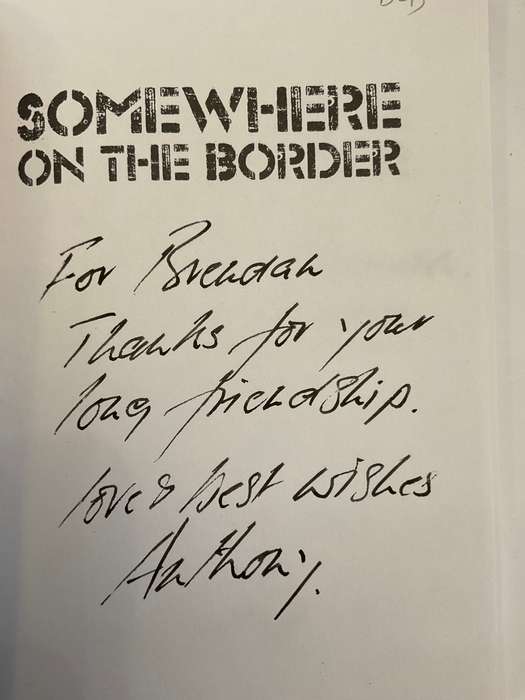 SOMEWHERE
ON THE BORDER
For Brendan
Thanks for your
long friendship.
love & best wishes
Anthony.